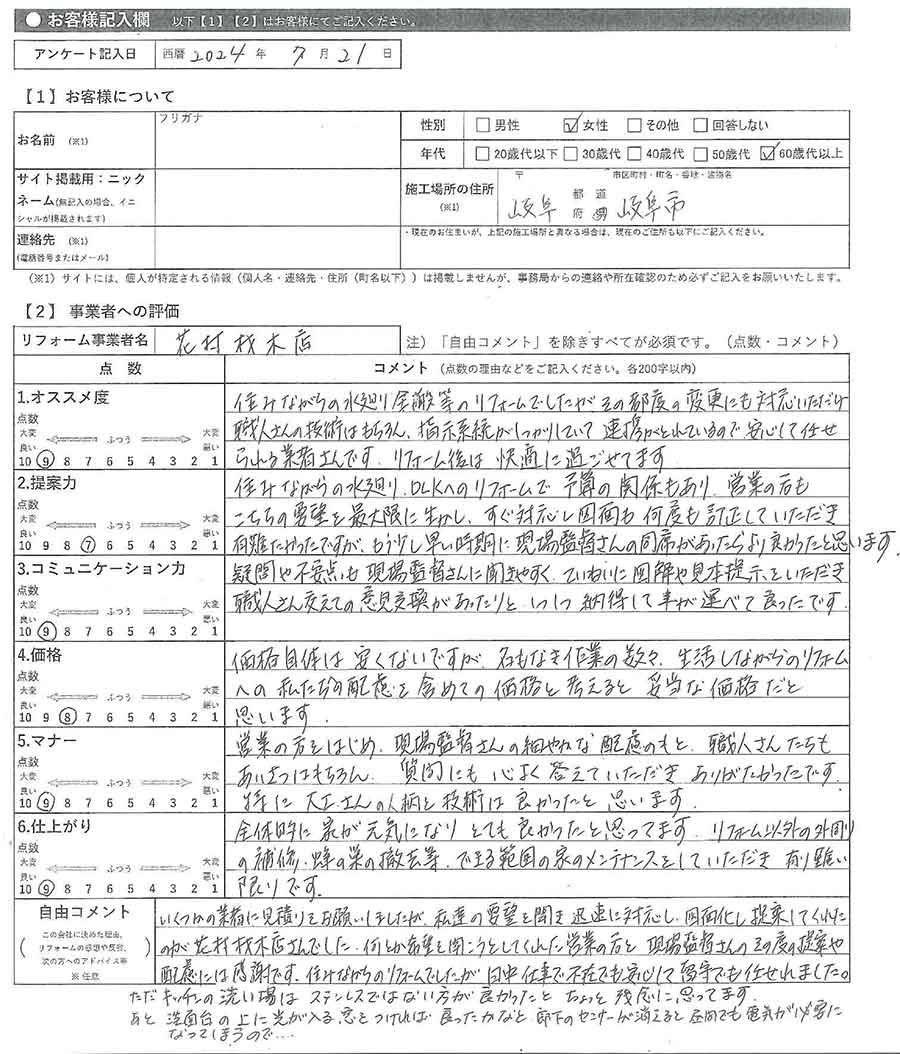 ● お客様記入欄 以下【1】【2】はお客様にてご記入ください。
アンケート記入日 西暦 2024 年 7 月 21 日
【1】お客様について
お名前 (※1) フリガナ
性別 □男性 ☑女性 □その他 □回答しない
年代 □20歳代以下 □30歳代 □40歳代 □50歳代 ☑60歳代以上
サイト掲載用：ニックネーム(無記入の場合、イニシャルが掲載されます)
施工場所の住所 (※1) 〒 市区町村・町名・番地・建物名
岐阜 都 道 府 県 岐阜市
連絡先 (※1)
(電話番号またはメール)
・現在のお住まいが、上記の施工場所と異なる場合は、現在のご住所も以下にご記入ください。
(※1）サイトには、個人が特定される情報（個人名・連絡先・住所（町名以下））は掲載しませんが、事務局からの連絡や所在確認のため必ずご記入をお願いいたします。
【2】 事業者への評価
リフォーム事業者名 花村材木店 注）「自由コメント」を除きすべてが必須です。（点数・コメント）
点 数 コメント（点数の理由などをご記入ください。各200字以内）
1.オススメ度
点数
大変良い ふつう 大変悪い
10 9 8 7 6 5 4 3 2 1
住みながらの水廻り全般等のリフォームでしたがその都度の変更にも対応いただけ
職人さんの技術はもちろん、指示系統がしっかりしていて連携がとれているので安心して任せ
られる業者さんです。リフォーム後は快適に過ごせてます
2.提案力
点数
大変良い ふつう 大変悪い
10 9 8 7 6 5 4 3 2 1
住みながらの水廻り、DLKへのリフォームで予算の関係もあり、営業の方も
こちらの要望を最大限に生かし、すぐ対応し図面も何度も訂正していただき
有難たかったですが、もう少し早い時期に現場監督さんの同席があったらより良かったと思います。
3.コミュニケーション力
点数
大変良い ふつう 大変悪い
10 9 8 7 6 5 4 3 2 1
疑問や不安点も現場監督さんに聞きやすく、ていねいに図解や見本提示をいただき
職人さん交えての意見交換があったりと、いつも納得して事が運べて良ったです。
4.価格
点数
大変良い ふつう 大変悪い
10 9 8 7 6 5 4 3 2 1
価格自体は安くないですが、 作業の数々、生活しながらのリフォーム
への私たちの配慮を含めての価格と考えると妥当な価格だと
思います。
5.マナー
点数
大変良い ふつう 大変悪い
10 9 8 7 6 5 4 3 2 1
営業の方をはじめ、現場監督さんの細やかな配慮のもと、職人さんたちも
あいさつはもちろん、質問にも心よく答えていただきありがたかったです。
特に大工さんの人柄と技術は良かったと思います。
6.仕上がり
点数
大変良い ふつう 大変悪い
10 9 8 7 6 5 4 3 2 1
全体的に家が元気になりとても良かったと思ってます。リフォーム以外の外回り
の補修、蜂の巣の撤去等、できる範囲の家のメンテナンスをしていただき有り難い
限りです。
自由コメント
（この会社に決めた理由、リフォームの感想や反省、次の方へのアドバイス等）
※ 任意
いくつかの業者に見積りをお願いしましたが、私達の要望を聞き迅速に対応し、図面化し提案してくれた
のが花村材木店さんでした。何とか希望を聞こうとしてくれた営業の方と現場監督さんのその度の提案や
配慮には感謝です。住みながらのリフォームでしたが日中仕事で不在でも安心して留守でも任せれました。
ただキッチンの洗い場はステンレスではない方が良かったとちょっと残念に思ってます。
あと洗面台の上に光が入る窓をつければ良ったかなと 廊下のセンサーが消えると昼間でも電気が必要に
なってしまうので…